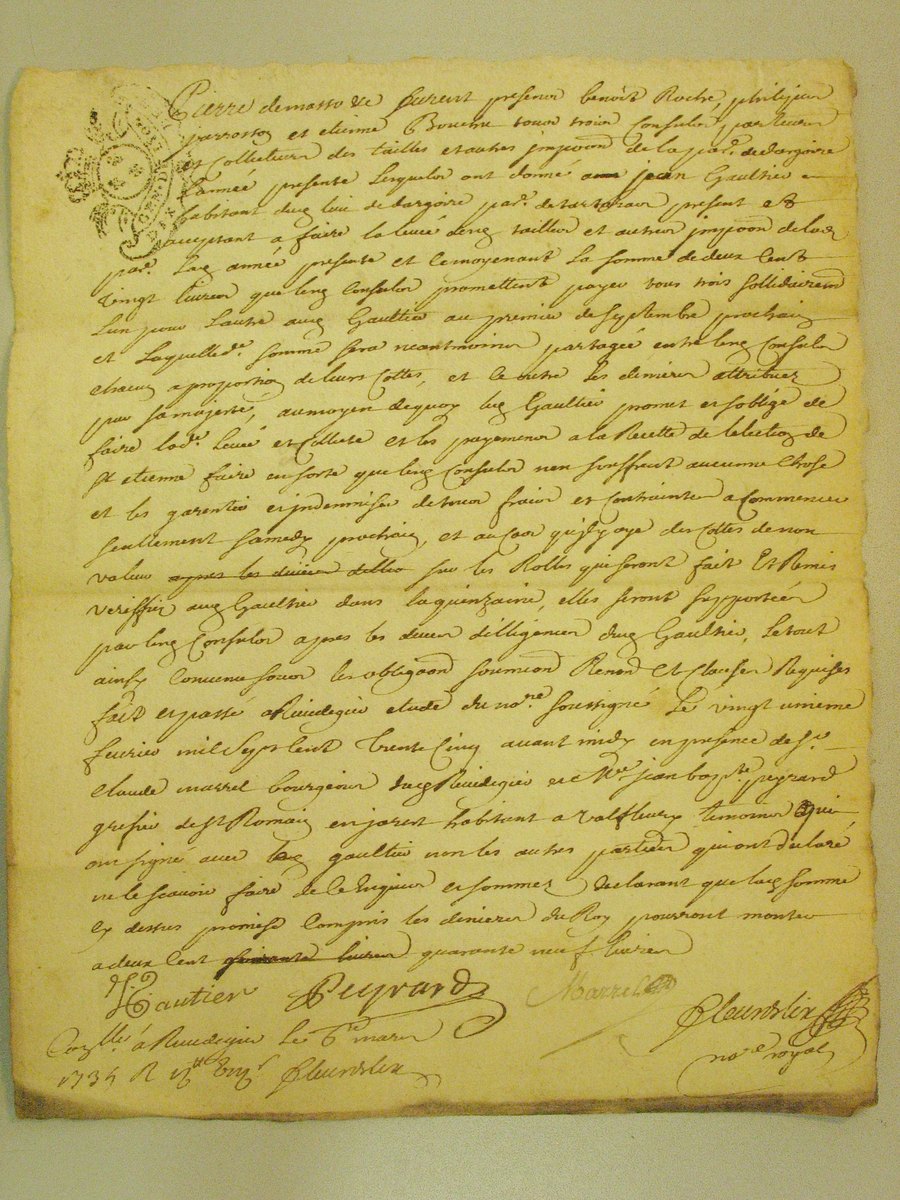 Pierre demasso de furent presens benoit Roche, philipe
parrosson et etienne tous trois Consulz
et Collecteurs des tailles et autres jmpoõn de la par. de dargoire
L'année presente Lesquelz ont donné a jean Gaultier
habitant duq lieu de dargoire par. de tartaras present et
acceptant a faire la levée desq tailles et autres jmpoõn de lad
par. Lad année presente et ce moyenant La somme de deux Cent
vingt livres que lesq Consulz promettent payer tous trois sollidairem
L'un pour L'autre auq Gaultier au premier de septembre prochain
et Laquelle de. somme sera neantmoins partagée entre lesq Consulz
chacun a proportion de leurs Cottes, et outre les deniers attribuez
par sa majesté, au moyen dequoy led Gaultier promet et s'oblige de
faire lade Levée et Collecte et les payemens a la Recette de l'election de
St etienne faire en sorte que lesq Consulz n'en souffrent aucunne Chose
et les garentir et jndemniser de tous frais et Contraintes a Commencer
seullement samedy prochain, et au cas qu'il y aye des Cottes de non
valeur apres les sur les Rolles qui seront fait Et Remis
veriffié auq Gaultier dans la quinzaine, elles seront supportées
par lesq Consulz apres les deues dilligences duq Gaultier, Le tout
ainsy Convenu sous les obligaõn soumiõn Renõn et Clauses Requises
fait et passé a Rivedegier etude du nore. soussigné Le vingt unieme
fevrier mil Sept Cent Trente Cinq avant midy en presence de Sr
Claude marrel bourgeois duq Rivedegier et Me jean bapte. peyrard
grefier de St Romain en jarest habitant a valfleury temoins qui
ont signé avec led gaultier non les autres parties qui ont declaré
ne le scavoir faire de ce Enquis et sommez declarant que lad somme
cy dessus promise Compris les deniers du Roy pourront monter
a deux Cent quarante neuf livres
Gautier Peyrard Marrel fleurdelix
nore royal
Conllé á Rivedegier Le 6e mars
1735 R fleurdelix